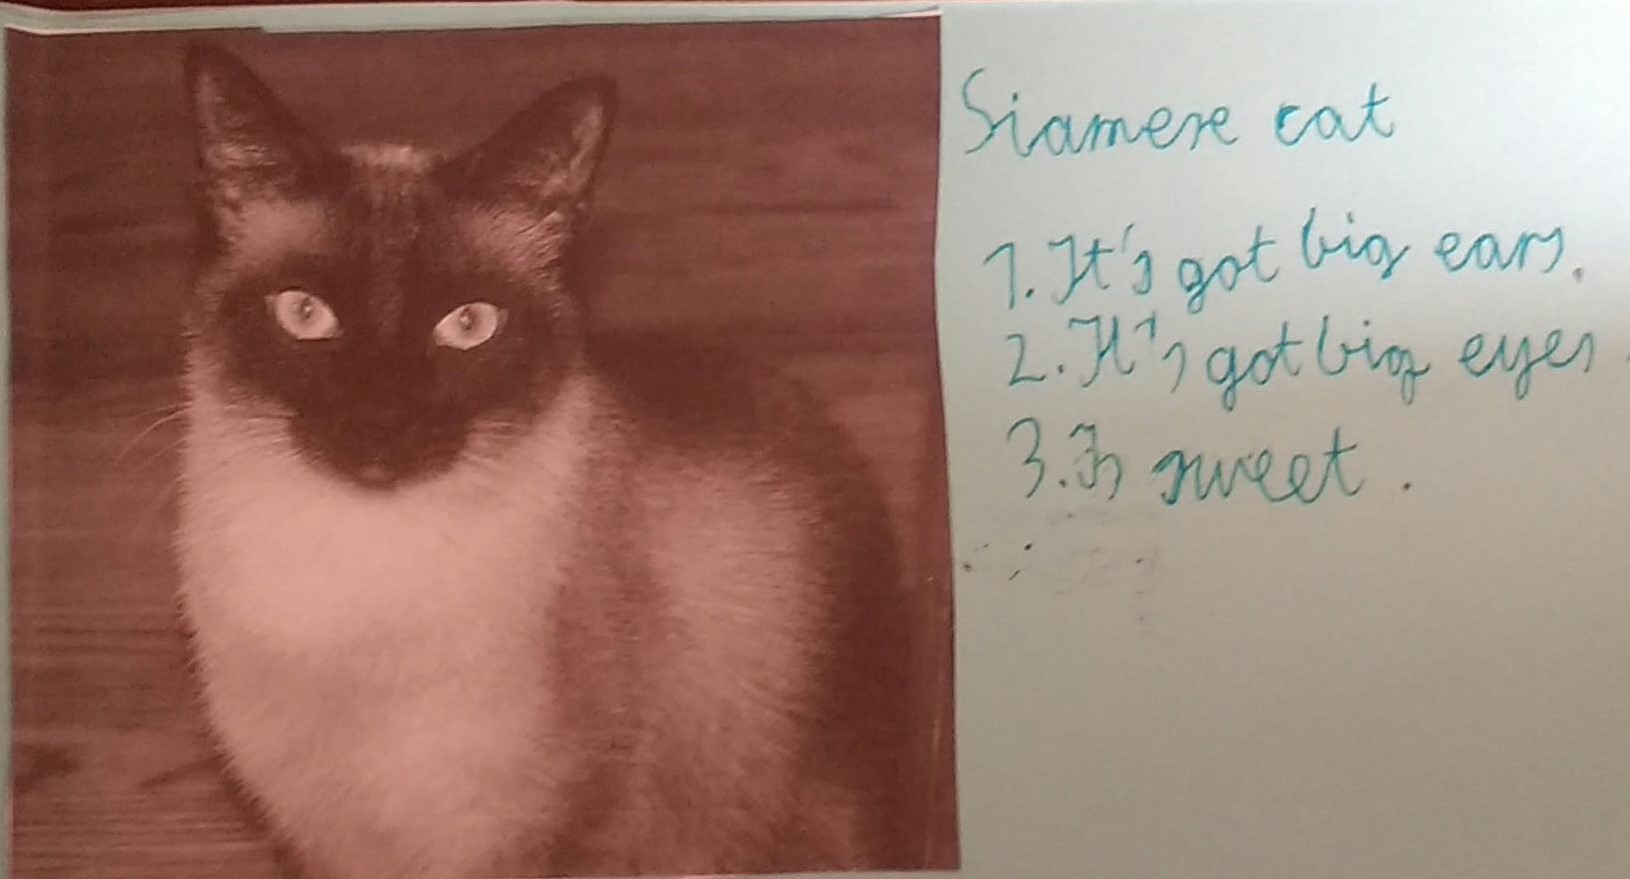 Siamese cat
1. It's got big ears.
2. It's got big eyes.
3. Is sweet.